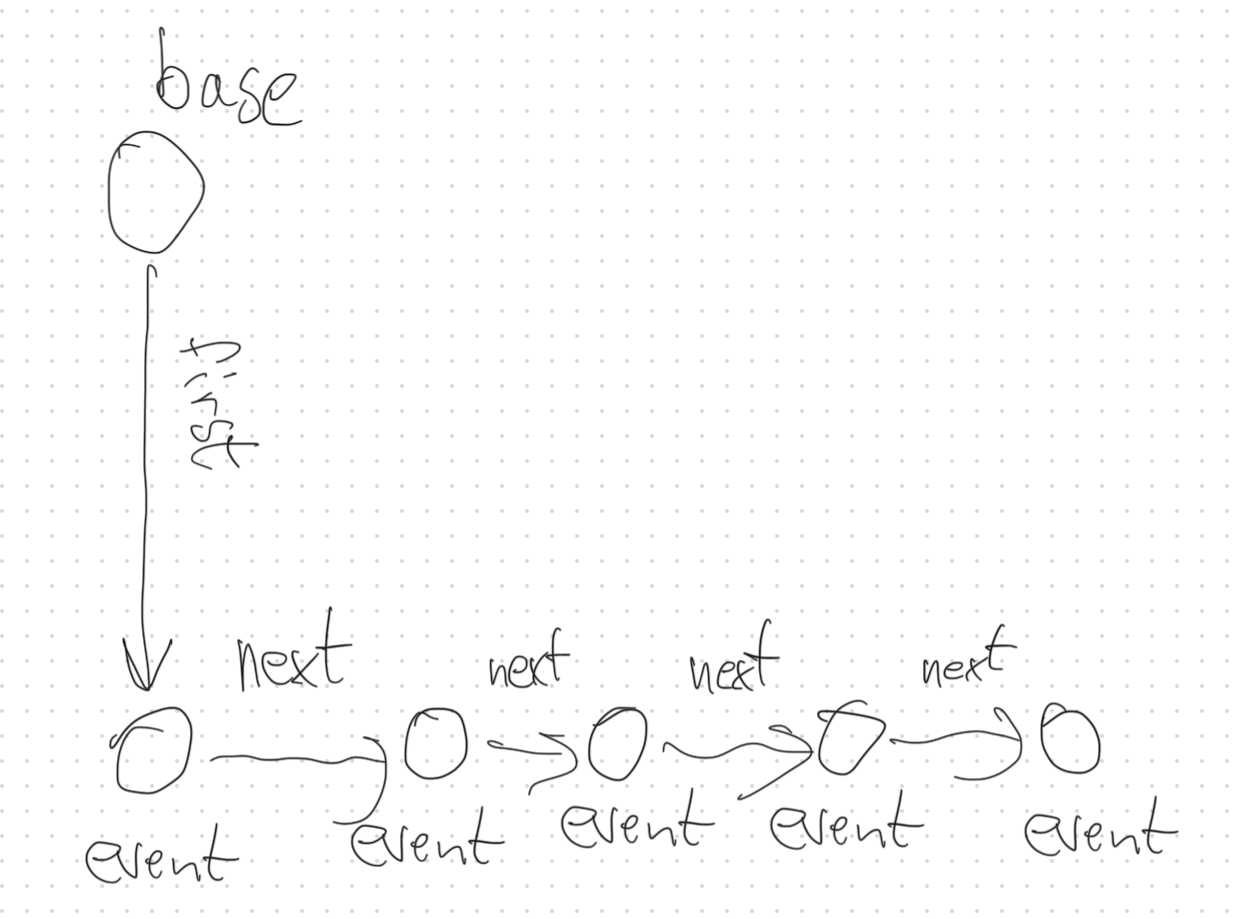 base
first
next next next next
event event event event event